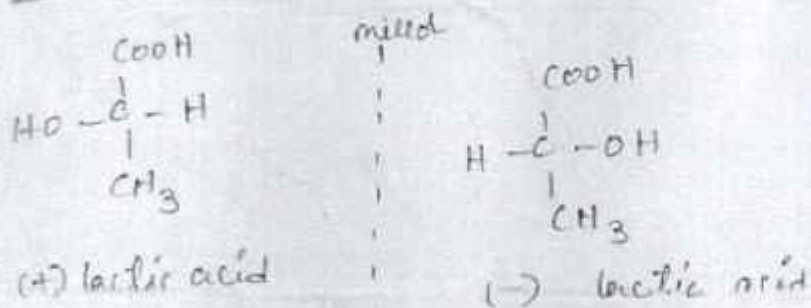 COOH
HO - C - H
CH3
(+) lactic acid
COOH
H - C - OH
CH3
(-) lactic acid